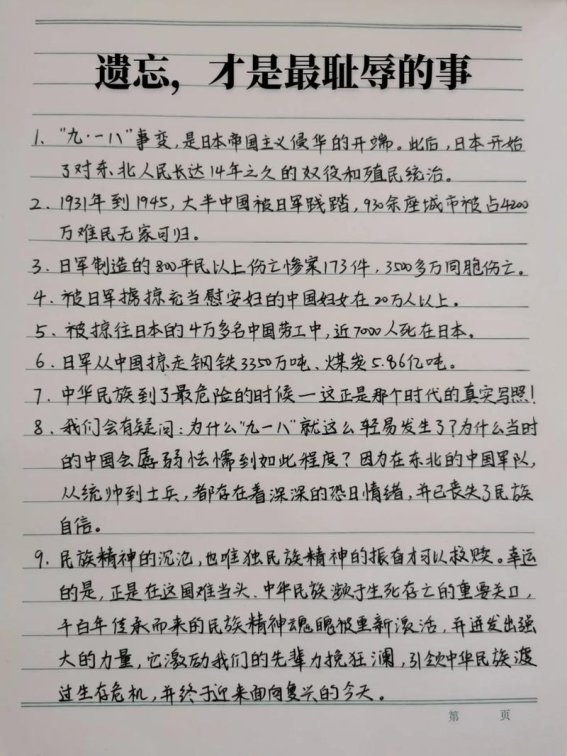 遗忘，才是最耻辱的事
1. "九·一八"事变，是日本帝国主义侵华的开端。此后，日本开始
了对东北人民长达14年之久的奴役和殖民统治。
2. 1931年到1945，大半中国被日军践踏，930余座城市被占4200
万难民无家可归。
3. 日军制造的800平民以上伤亡惨案173件，3500多万同胞伤亡。
4. 被日军掳掠充当慰安妇的中国妇女在20万人以上。
5. 被掠往日本的4万多名中国劳工中，近7000人死在日本。
6. 日军从中国掠走钢铁3350万吨、煤炭5.86亿吨。
7. 中华民族到了最危险的时候—这正是那个时代的真实写照！
8. 我们会有疑问：为什么"九一八"就这么轻易发生了？为什么当时
的中国会孱弱怯懦到如此程度？因为在东北的中国军队，
从统帅到士兵，都存在着深深的恐日情绪，并已丧失了民族
自信。
9. 民族精神的沉沦，也唯独民族精神的振奋才可以救赎。幸运
的是，正是在这国难当头、中华民族濒于生死存亡的重要关口，
千百年传承而来的民族精神魂魄被重新激活，并迸发出强
大的力量，它激励我们的先辈力挽狂澜，引领中华民族渡
过生存危机，并终于迎来面向复兴的今天。
第 页